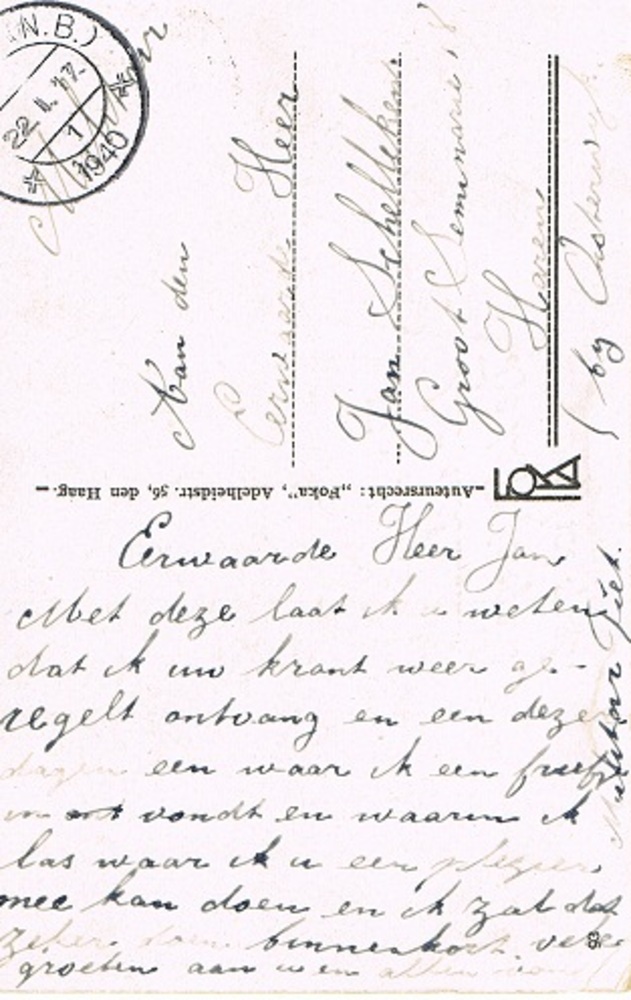 (N.B.)
22.II.17.
1
1940
Militair
Aan den
Eerwaarde Heer
Jan Schellekens
Groot Seminarie
Haren
(by Oisterwyk.
Auteursrecht: „Foka”, Adelheidstr. 56, den Haag.
FOKA
Eerwaarde Heer Jan
Met deze laat ik u weten
dat ik uw krant weer ge-
regelt ontvang en een dezer
dagen een waar ik een
in vondt en waarin ik
las waar ik u een plezier
mee kan doen en ik zal dat
zeker doen binnenkort. vele
groeten aan u en allen
Piet.